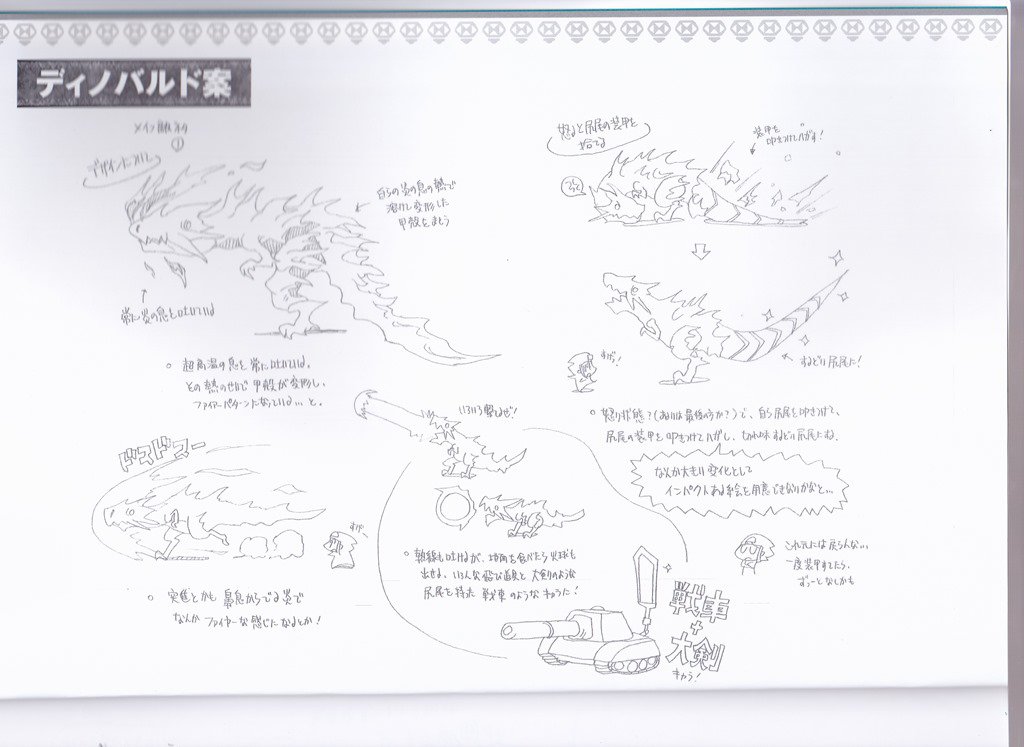 ディノバルド案
メイン敵ネタ
①
デザインについて
自らの炎の息の熱で
溶けて変形した
甲殻をまとう
常に炎の息を吐いている
○ 超高温の息を常に吐いている。
その熱のせいで甲殻が変形し、
ファイアーパターンになっている…と。
怒ると尻尾の装甲を
捨てる
装甲を
叩きつけてハガす!
するどい尻尾に!
○ 怒り状態?(あるいは最後の方か?)で、自ら尻尾を叩きつけて、
尻尾の装甲を叩きつけてハガし、切れ味するどい尻尾になる。
なんか大きい変化として
インパクトある絵を用意できないかなと…
これ元には戻らんない…
一度装甲すてたら、
ずっーとなしかも
いろいろ撃てるぜ!
○ 熱線も吐けるが、地面を食べたら火球も
出せる。いろんな飛び道具と大剣のような
尻尾を持つ 戦車のようなキャラだ!
戦車
+
大剣
キャラ!
ドスドスー
○ 突進とかも鼻息からでる炎で
なんかファイヤーな感じになるとか!